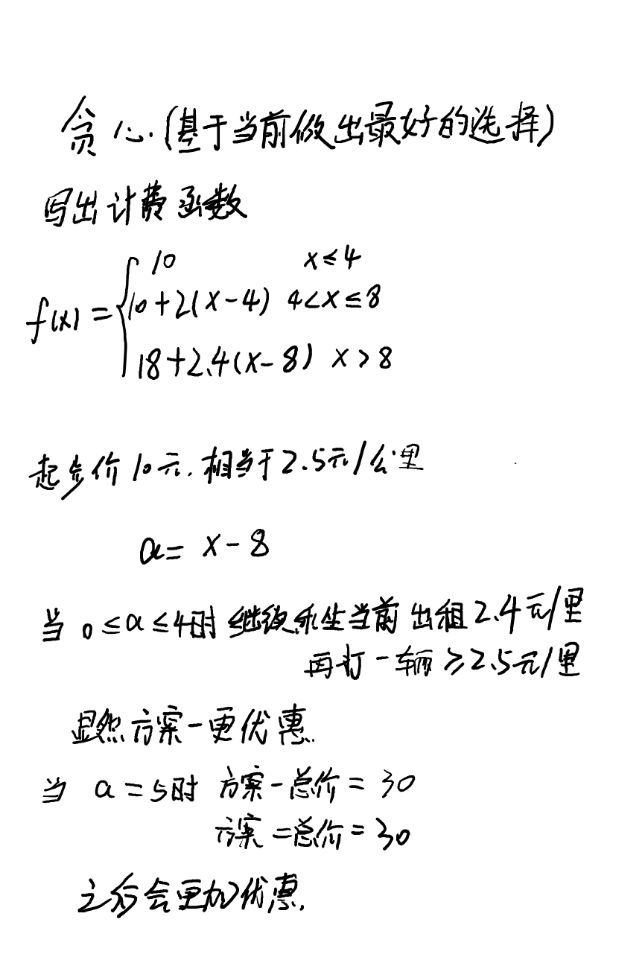 贪心.(基于当前做出最好的选择)
写出计费函数
f(x) = { 10 x≤4
10+2(x-4) 4<x≤8
18+2.4(x-8) x>8
起步价10元.相当于2.5元/公里
a= x-8
当 0≤a≤4时 继续乘坐当前出租2.4元/里
再打一辆≥2.5元/里
显然方案一更优惠.
当 a=5时 方案一总价=30
方案二总价=30
之后会更加优惠.